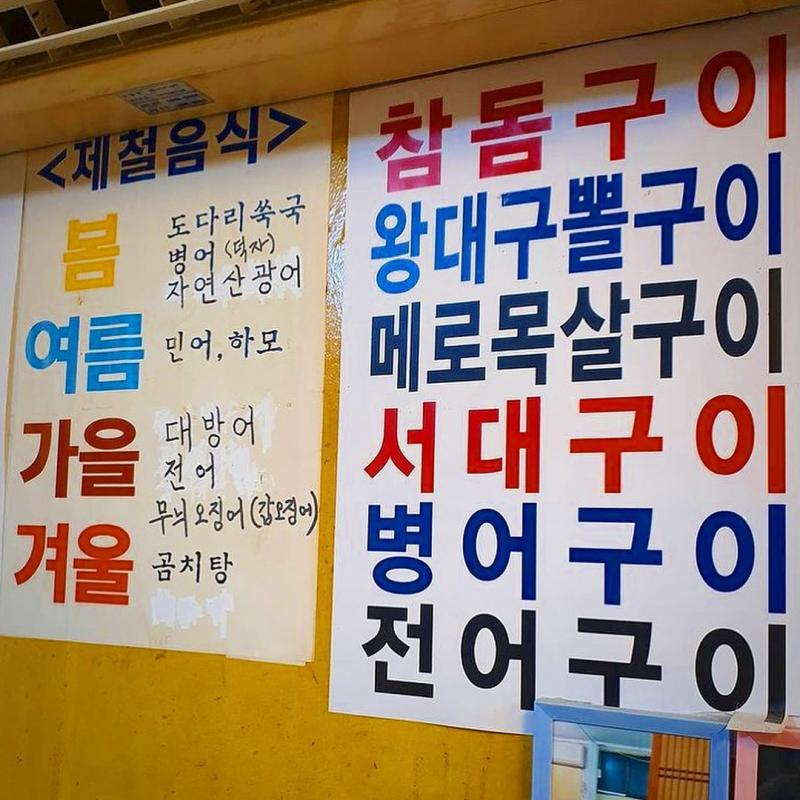 <제철음식>
봄
도다리쑥국
병어 (덕자)
자연산광어
여름
민어,하모
가을
대방어
전어
무늬오징어(갑오징어)
겨울
곰치탕
참돔구이
왕대구뽈구이
메로목살구이
서대구이
병어구이
전어구이